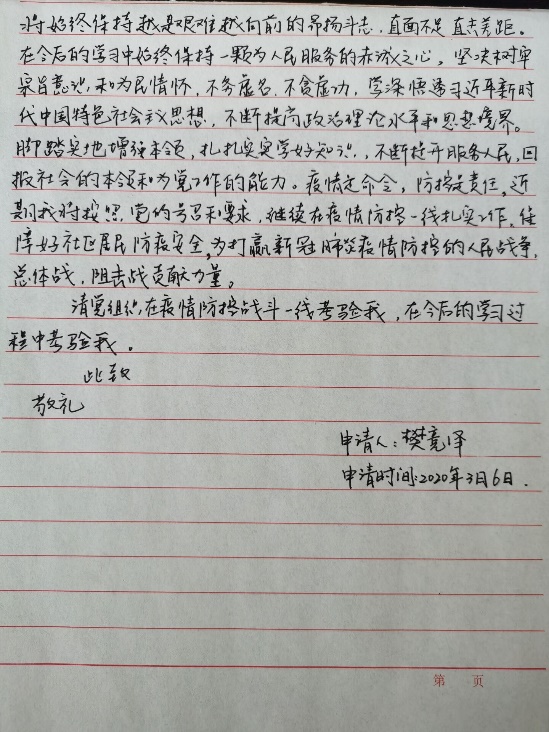 将始终保持越是艰难越向前的昂扬斗志，直面不足直击差距。
在今后的学习中始终保持一颗为人民服务的赤诚之心，坚决树牢
宗旨意识和为民情怀，不务虚名，不贪虚功，学深悟透习近平新时
代中国特色社会主义思想，不断提高政治理论水平和思想境界。
脚踏实地增强本领，扎扎实实学好知识，不断提升服务人民，回
报社会的本领和为党工作的能力。疫情是命令，防控是责任，近
期我将按照党的号召和要求，继续在疫情防控一线扎实工作，保
障好社区居民防疫安全，为打赢新冠肺炎疫情防控的人民战争，
总体战，阻击战贡献力量。
请党组织在疫情防控战斗一线考验我，在今后的学习过
程中考验我。
此致
敬礼
申请人：樊竟泽
申请时间：2020年3月6日.
第 页